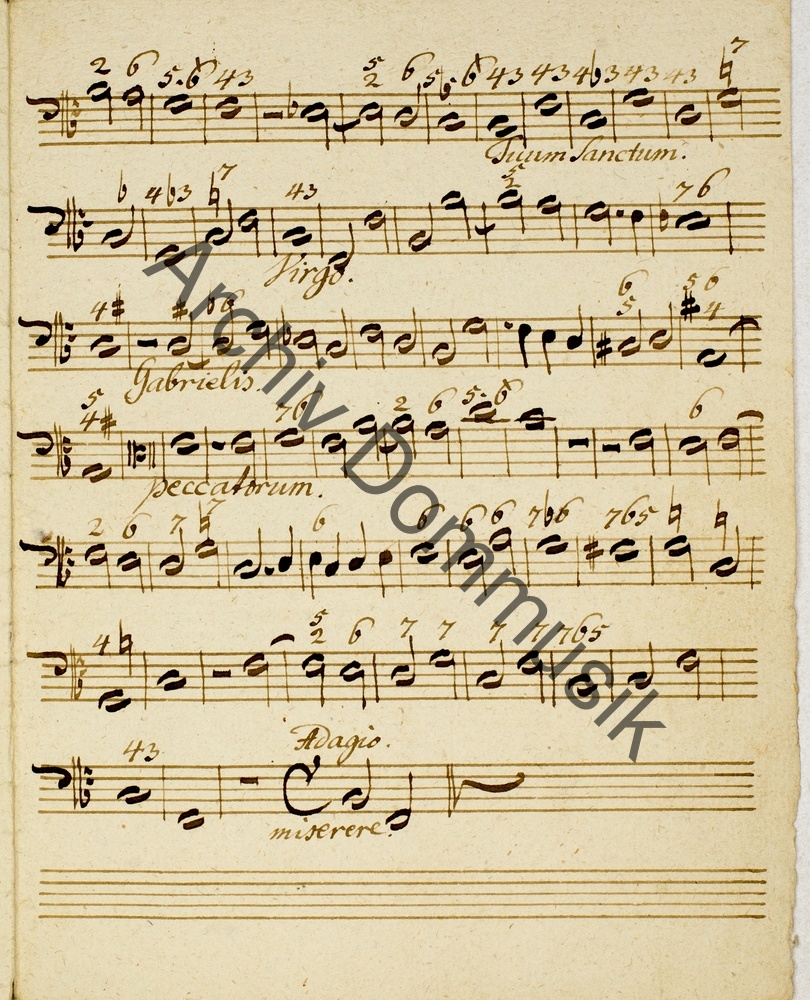 2 6 5·6 43 5 2 6 5 ♭· 6 43 43 4♭3 43 43 ♮ 7
Tuum Sanctum.
♭ 4♭3 ♮7 43 5 2 76
Virgo.
4# # ♭6 6 5 5 6 #4
Gabrielis.
5 4# 76 2 6 5·6 6
peccatorum.
2 6 7 ♮7 6 6 6 6 7♭6 765 ♮ ♮
4♮ 5 2 6 7 7 7 7 765
43 Adagio.
miserere.
Archiv Dommusik